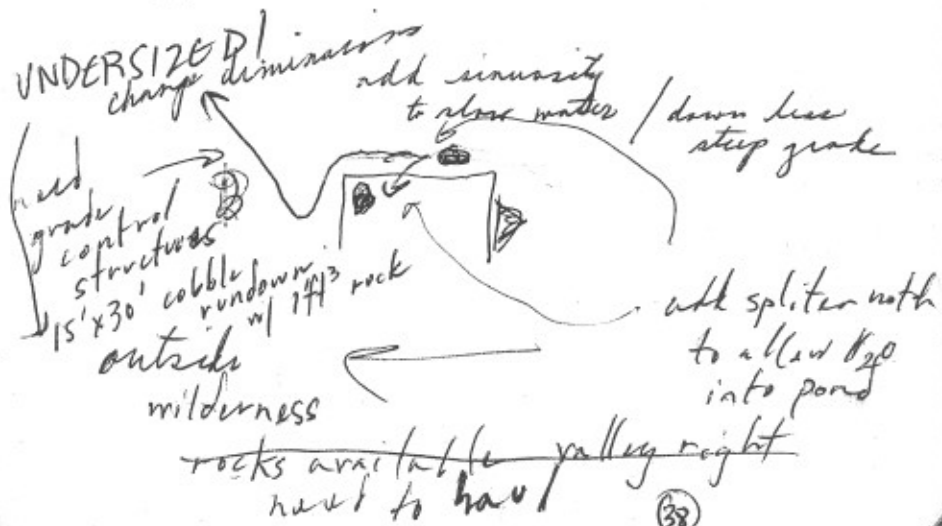 UNDERSIZED!
change diminsions
add sinuosity
to slow water / down less
steep grade
need
grade
control
structures
15' x 30' cobble
rundown
w/ 1ft³ rock
outside
wilderness
add spliter
to allow H₂O
into pond
rocks available valley right
need to haul
38